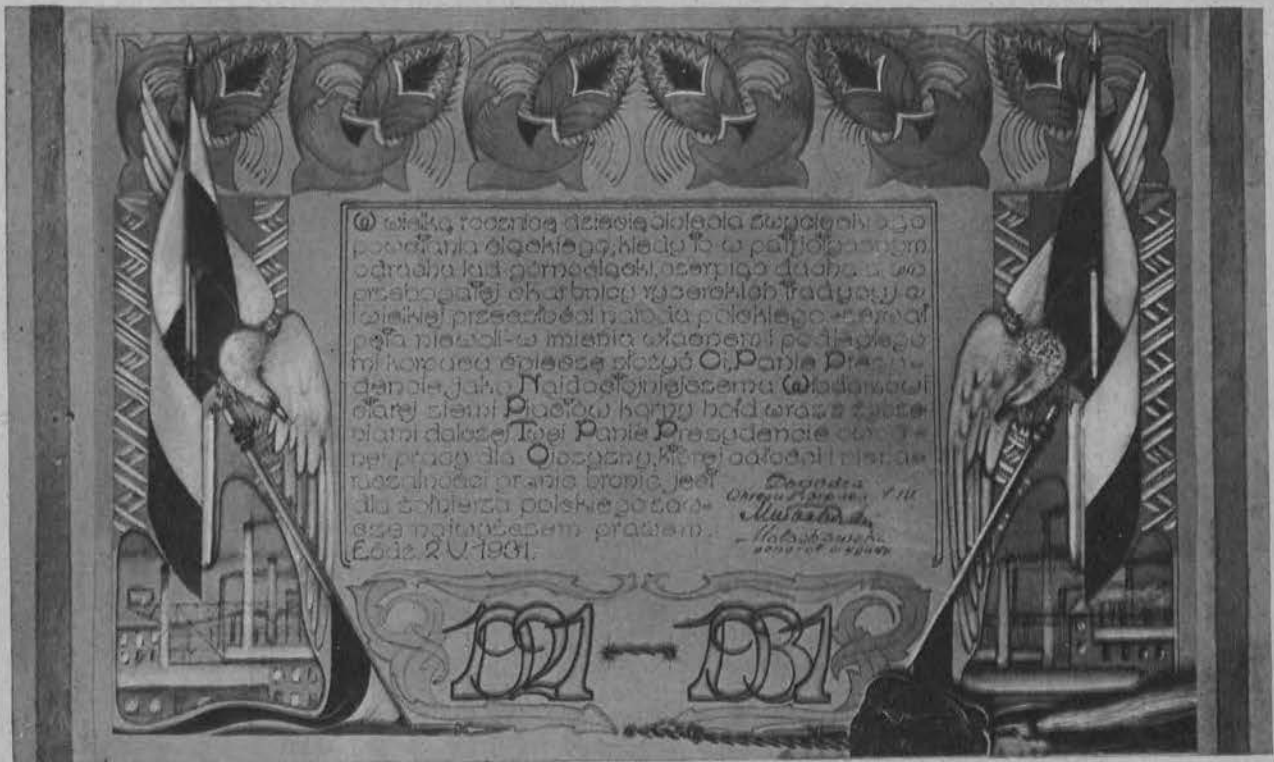 W wielką rocznicę dziesięciolecia zwycięskiego
powstania śląskiego, kiedy to w patrjotycznym
odruchu lud górnośląski, czerpiąc ducha z
przebogatej skarbnicy rycerskich tradycyj
wielkiej przeszłości narodu polskiego zerwał
pęta niewoli - w imieniu własnem i podległego
mi korpusu śpieszę złożyć Ci, Panie Prezy-
dencie, jako Najdostojniejszemu Włodarzowi
starej ziemi Piastów korny hołd wraz z życze-
niami dalszej Twej Panie Prezydencie
nej pracy dla Ojczyzny, której całości i
granic bronić, jest
dla żołnierza polskiego zaw-
sze najwyższem prawem.
Łódź 2.V.1931.
Dowódca
Okręgu Korpusu IV.
Małachowski
generał brygady
1921 — 1931